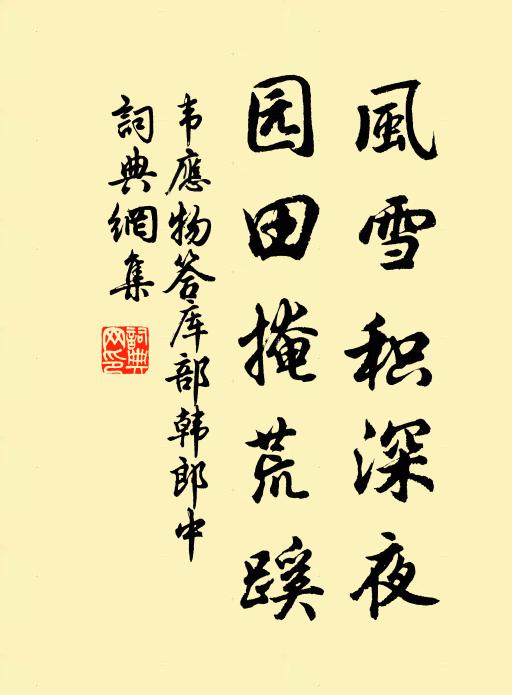 風雪积深夜
园田掩荒蹊
韦應物答库部韩郎中
詞典網集
詞典網印